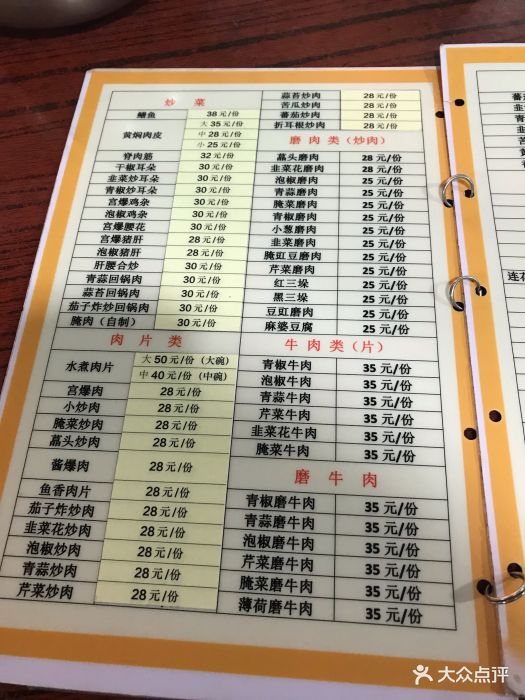 炒 菜
鳝鱼 38 元/份
黄焖肉皮 大 35 元/份
中 28 元/份
小 25 元/份
脊肉筋 32 元/份
干椒耳朵 30 元/份
韭菜炒耳朵 30 元/份
青椒炒耳朵 30 元/份
宫爆鸡杂 30 元/份
泡椒鸡杂 30 元/份
宫爆腰花 30 元/份
宫爆猪肝 28 元/份
泡椒猪肝 28 元/份
肝腰合炒 30 元/份
青蒜回锅肉 30 元/份
蒜苔回锅肉 30 元/份
茄子炸炒回锅肉 30 元/份
腌肉（自制） 30 元/份
肉 片 类
水煮肉片 大 50 元/份（大碗）
中 40 元/份（中碗）
宫爆肉 28 元/份
小炒肉 28 元/份
腌菜炒肉 28 元/份
藠头炒肉 28 元/份
酱爆肉 28 元/份
鱼香肉片 28 元/份
茄子炸炒肉 28 元/份
韭菜花炒肉 28 元/份
泡椒炒肉 28 元/份
青蒜炒肉 28 元/份
芹菜炒肉 28 元/份
蒜苔炒肉 28 元/份
苦瓜炒肉 28 元/份
蕃茄炒肉 28 元/份
折耳根炒肉 28 元/份
磨 肉 类（炒肉）
藠头磨肉 28 元/份
韭菜花磨肉 28 元/份
泡椒磨肉 25 元/份
青蒜磨肉 25 元/份
腌菜磨肉 25 元/份
青椒磨肉 25 元/份
小葱磨肉 25 元/份
韭菜磨肉 25 元/份
腌豇豆磨肉 25 元/份
芹菜磨肉 25 元/份
红三垛 25 元/份
黑三垛 25 元/份
豆豇磨肉 25 元/份
麻婆豆腐 25 元/份
牛 肉 类（片）
青椒牛肉 35 元/份
泡椒牛肉 35 元/份
青蒜牛肉 35 元/份
芹菜牛肉 35 元/份
韭菜花牛肉 35 元/份
腌菜牛肉 35 元/份
磨 牛 肉
青椒磨牛肉 35 元/份
青蒜磨牛肉 35 元/份
泡椒磨牛肉 35 元/份
芹菜磨牛肉 35 元/份
腌菜磨牛肉 35 元/份
薄荷磨牛肉 35 元/份
连花
大众点评